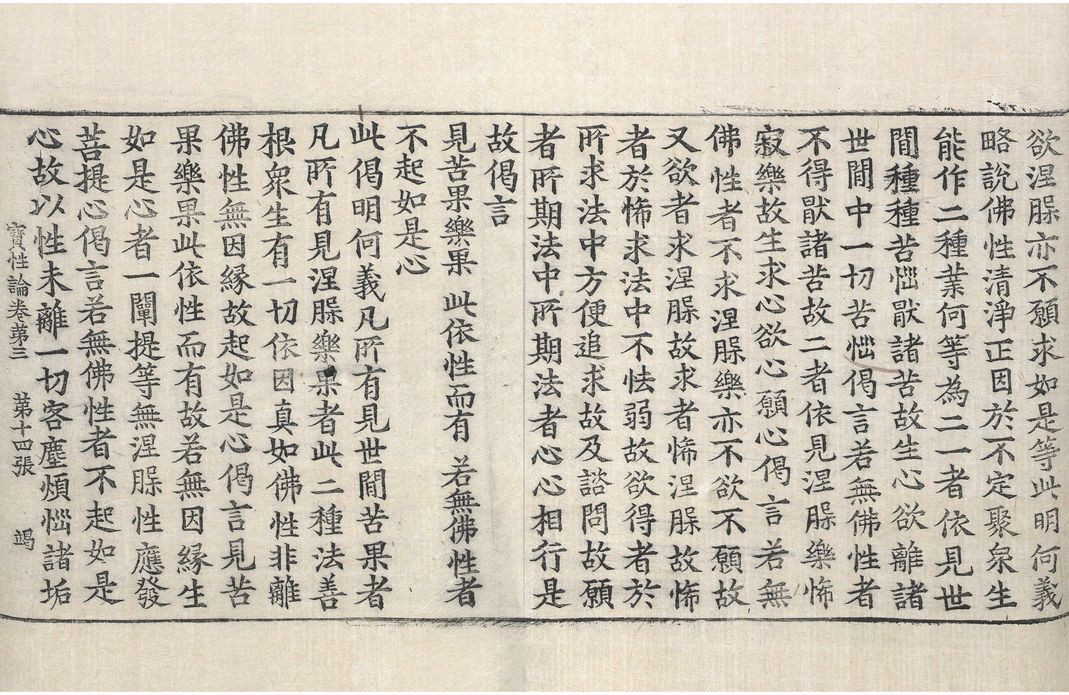 欲涅槃亦不願求如是等此明何義
略說佛性清淨正因於不定聚衆生
能作二種業何等為二一者依見世
閒種種苦惱猒諸苦故生心欲離諸
世閒中一切苦惱偈言若無佛性者
不得猒諸苦故二者依見涅槃樂悕
寂樂故生求心欲心願心偈言若無
佛性者不求涅槃樂亦不欲不願故
又欲者求涅槃故求者悕涅槃故悕
者於悕求法中不怯弱故欲得者於
所求法中方便追求故及諮問故願
者所期法中所期法者心心相行是
故偈言
見苦果樂果 此依性而有 若無佛性者
不起如是心
此偈明何義凡所有見世閒苦果者
凡所有見涅槃樂果者此二種法善
根衆生有一切依因真如佛性非離
佛性無因緣故起如是心偈言見苦
果樂果此依性而有故若無因緣生
如是心者一闡提等無涅槃性應發
菩提心偈言若無佛性者不起如是
心故以性未離一切客塵煩惱諸垢
寶性論卷第三 第十四張 竭